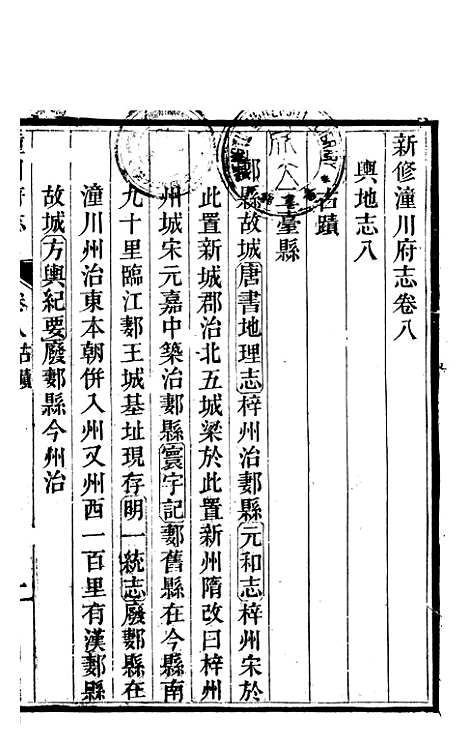 新修潼川府志卷八
輿地志八
古蹟
臺縣
郪縣故城唐書地理志梓州治郪縣元和志梓州宋於
此置新城郡治北五城梁於此置新州隋改曰梓州
州城宋元嘉中築治郪縣寰宇記郪舊縣在今縣南
九十里臨江郪王城基址現存明一統志廢郪縣在
潼川州治東本朝併入州又州西一百里有漢郪縣
故城方輿紀要廢郪縣今州治
卷八古蹟